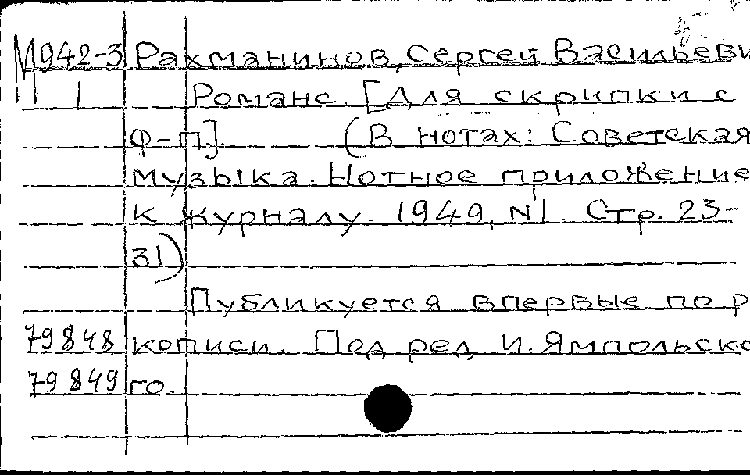 М942-3 Рахманинов, Сергей Васильеви
1 Романс. [Для скрипки с
ф-п.] (В нотах: Советская
музыка. Нотное приложение
к журналу. 1949, N1. Стр. 23-
31)
Публикуется впервые по р
79848 кописи. Под ред. И. Ямпольско
79849 го.